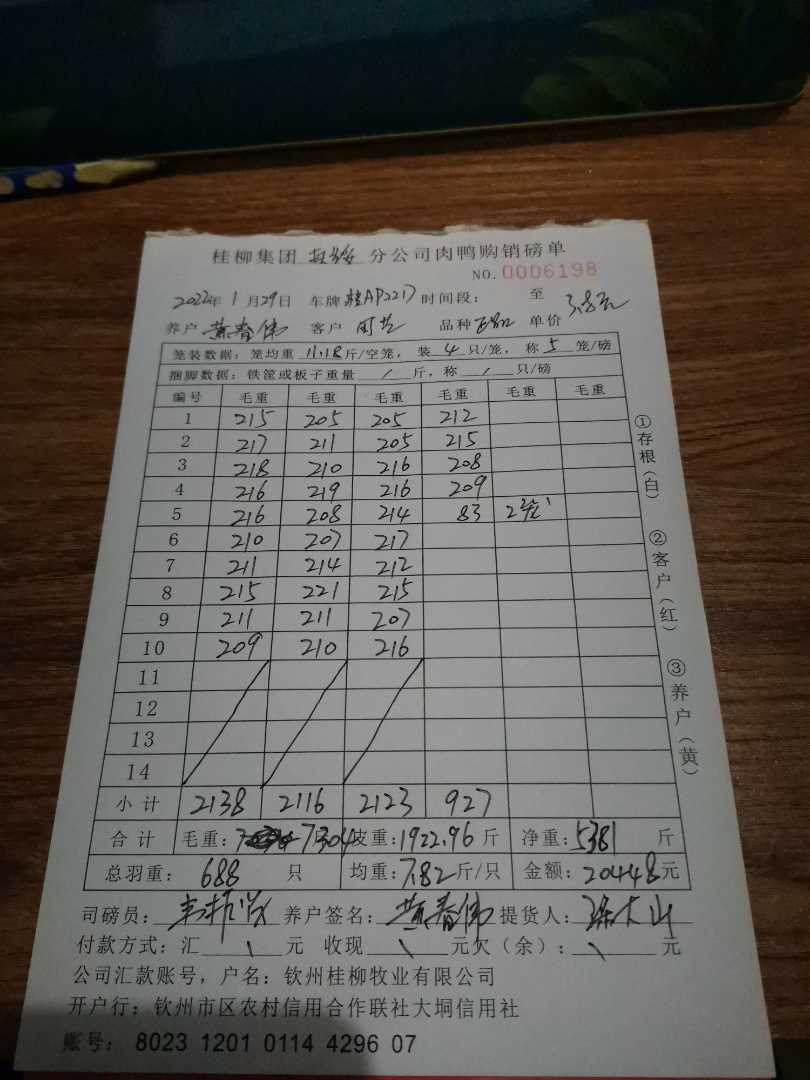 桂柳集团 分公司肉鸭购销磅单
NO.0006198
2022年1月29日 车牌桂AP2217 时间段： 至
养户 黄春伟 客户 品种 单价 3.8元
笼装数据：笼均重 11.18 斤/空笼，装 4 只/笼，称 5 笼/磅
捆脚数据：铁筐或板子重量 / 斤，称 / 只/磅
编号 毛重 毛重 毛重 毛重 毛重 毛重
1 215 205 205 212
2 217 211 205 215
3 218 210 216 208
4 216 219 216 209
5 216 208 214 83 2笼
6 210 207 217
7 211 214 212
8 215 221 215
9 211 211 207
10 209 210 216
11
12
13
14
小计 2138 2116 2123 927
合计 毛重：7304 皮重：1922.96 斤 净重：5381 斤
总羽重：688 只 均重：7.82 斤/只 金额：20448元
司磅员： 养户签名：黄春伟 提货人：
付款方式：汇 \ 元 收现 \ 元欠（余）：\ 元
公司汇款账号，户名：钦州桂柳牧业有限公司
开户行：钦州市区农村信用合作联社大垌信用社
账号：8023 1201 0114 4296 07
①存根（白）
②客户（红）
③养户（黄）